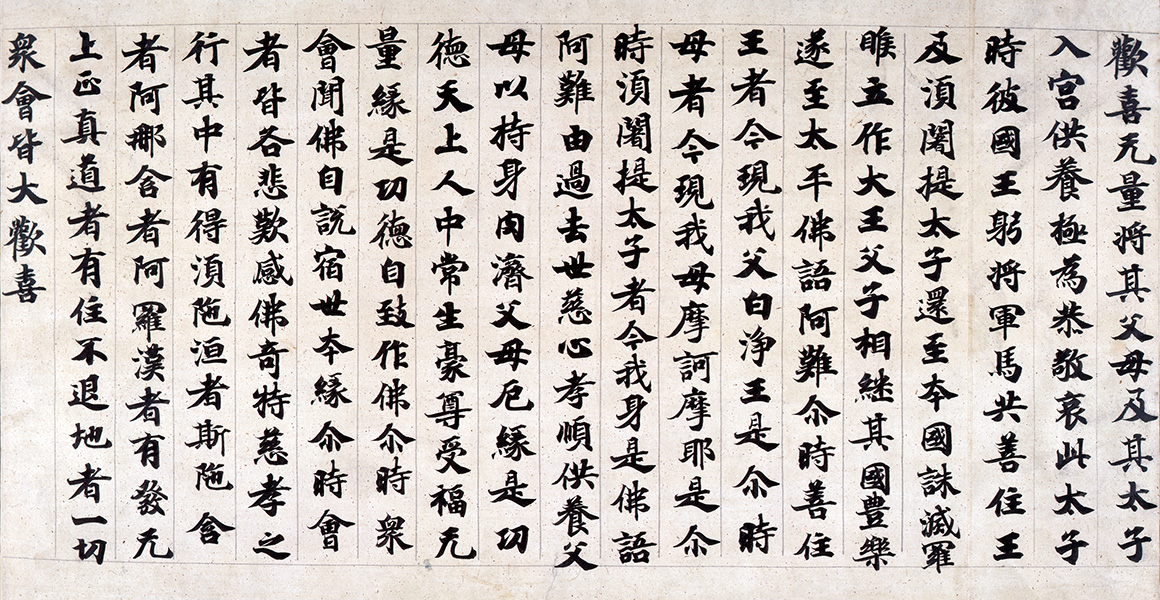 歡喜无量将其父母及其太子
入宫供養極為恭敬哀此太子
時彼國王躬将軍馬共善住王
及湏闍提太子還至本國誅滅羅
睺立作大王父子相継其國豊樂
遂至太平佛語阿難尒時善住
王者今現我父白浄王是尒時
母者今現我母摩訶摩耶是尒
時湏闍提太子者今我身是佛語
阿難由過去世慈心孝順供養父
母以持身肉濟父母厄縁是功
德天上人中常生豪尊受福无
量縁是功德自致作佛尒時衆
會聞佛自說宿世本縁尒時會
者皆各悲歎感佛奇特慈孝之
行其中有得湏陁洹者斯陁含
者阿那含者阿羅漢者有發无
上正真道者有住不退地者一切
衆會皆大歡喜